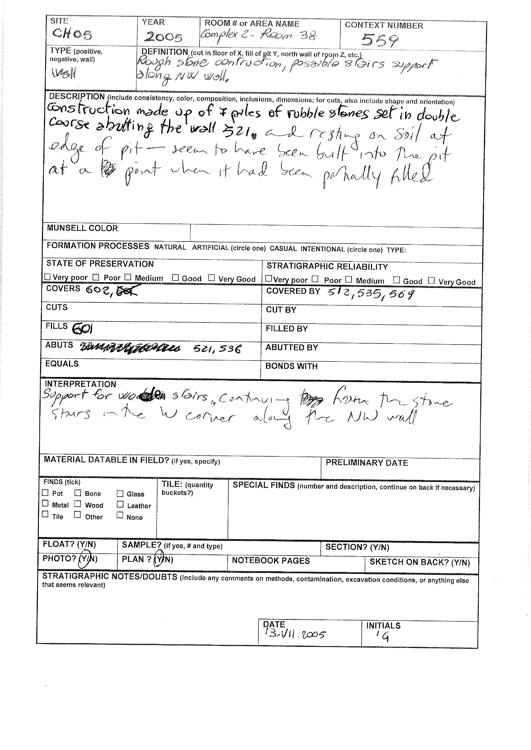 SITE YEAR ROOM # or AREA NAME CONTEXT NUMBER
CH05 2005 Complex 2- Room 38 559
TYPE (positive, negative, wall) DEFINITION (cut in floor of X, fill of pit Y, north wall of room Z, etc.)
Wall Rough stone contruction, possible stairs support
along NW wall.
DESCRIPTION (include consistency, color, composition, inclusions, dimensions; for cuts, also include shape and orientation)
Construction made up of 7 piles of rubble stones set in double
course abutting the wall 521, and resting on soil at
edge of pit — seem to have been built into the pit
at a point when it had been partially filled
MUNSELL COLOR
FORMATION PROCESSES NATURAL ARTIFICIAL (circle one) CASUAL INTENTIONAL (circle one) TYPE:
STATE OF PRESERVATION STRATIGRAPHIC RELIABILITY
☐ Very poor ☐ Poor ☐ Medium ☐ Good ☐ Very Good ☐ Very poor ☐ Poor ☐ Medium ☐ Good ☐ Very Good
COVERS 602, COVERED BY 512, 535, 569
CUTS CUT BY
FILLS 601 FILLED BY
ABUTS 521, 536 ABUTTED BY
EQUALS BONDS WITH
INTERPRETATION
Support for wooden stairs, continuing from the stone
stairs in the W corner along the NW wall
MATERIAL DATABLE IN FIELD? (if yes, specify) PRELIMINARY DATE
FINDS (tick) TILE: (quantity buckets?) SPECIAL FINDS (number and description, continue on back if necessary)
☐ Pot ☐ Bone ☐ Glass
☐ Metal ☐ Wood ☐ Leather
☐ Tile ☐ Other ☐ None
FLOAT? (Y/N) SAMPLE? (if yes, # and type) SECTION? (Y/N)
PHOTO? (Y/N) PLAN ? (Y/N) NOTEBOOK PAGES SKETCH ON BACK? (Y/N)
STRATIGRAPHIC NOTES/DOUBTS (include any comments on methods, contamination, excavation conditions, or anything else
that seems relevant)
DATE INITIALS
13.VII.2005